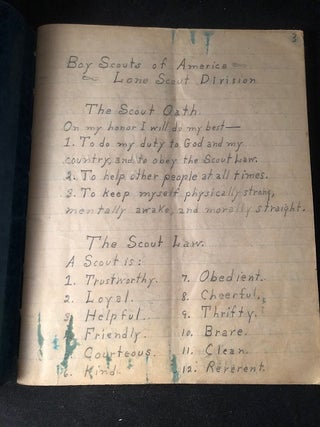 3
Boy Scouts of America
Lone Scout Division
The Scout Oath.
On my honor I will do my best—
1. To do my duty to God and my
country, and to obey the Scout Law.
2. To help other people at all times.
3. To keep myself physically strong,
mentally awake, and morally straight.
The Scout Law.
A Scout is:
1. Trustworthy.
2. Loyal.
3. Helpful.
Friendly.
Courteous.
6. Kind.
7. Obedient.
8. Cheerful.
9. Thrifty.
10. Brave.
11. Clean.
12. Reverent.